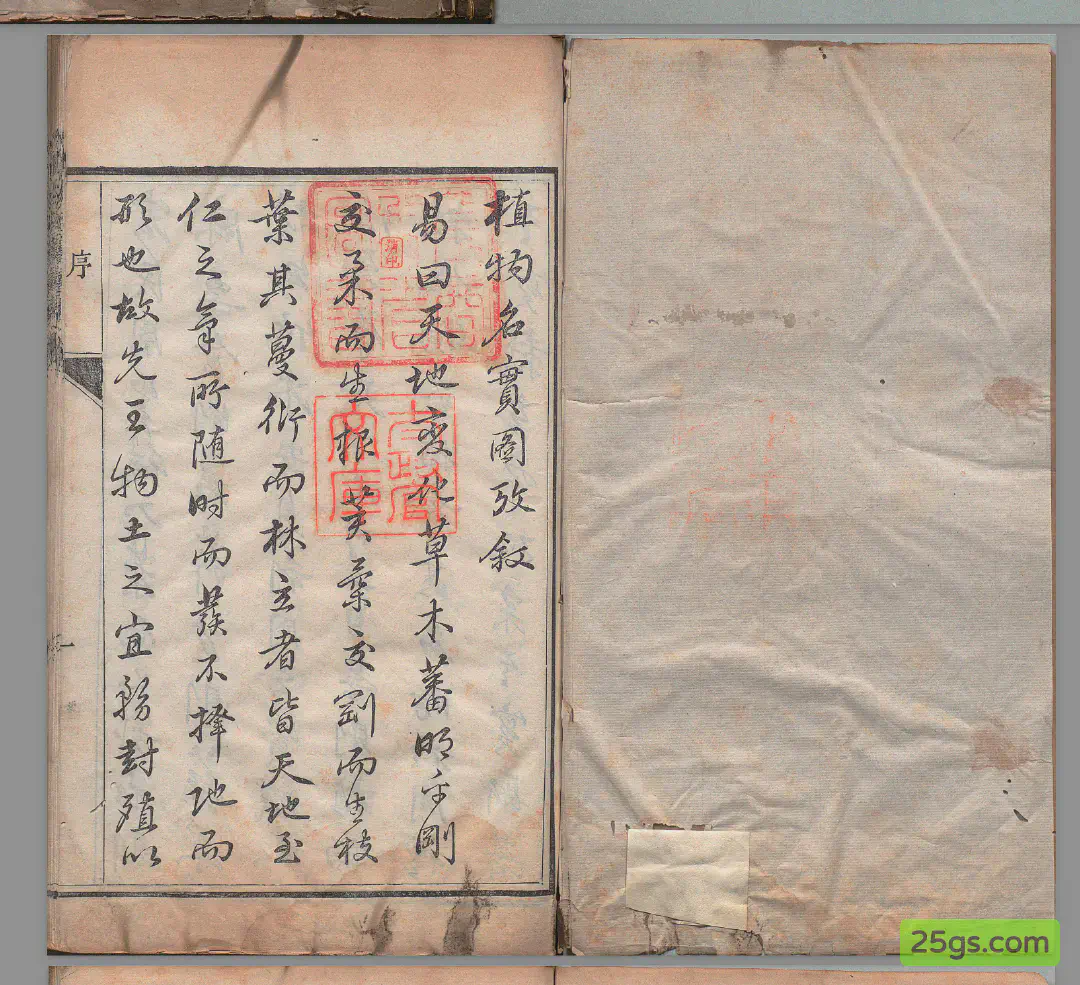 植物名實圖攷敘
易曰天地變化草木蕃明乎剛
交柔而生根荄柔交剛而生枝
葉其蔓衍而林立者皆天地至
仁之氣所随时而發不擇地而
形也故先王物土之宜務封殖以
序
一
25gs.com